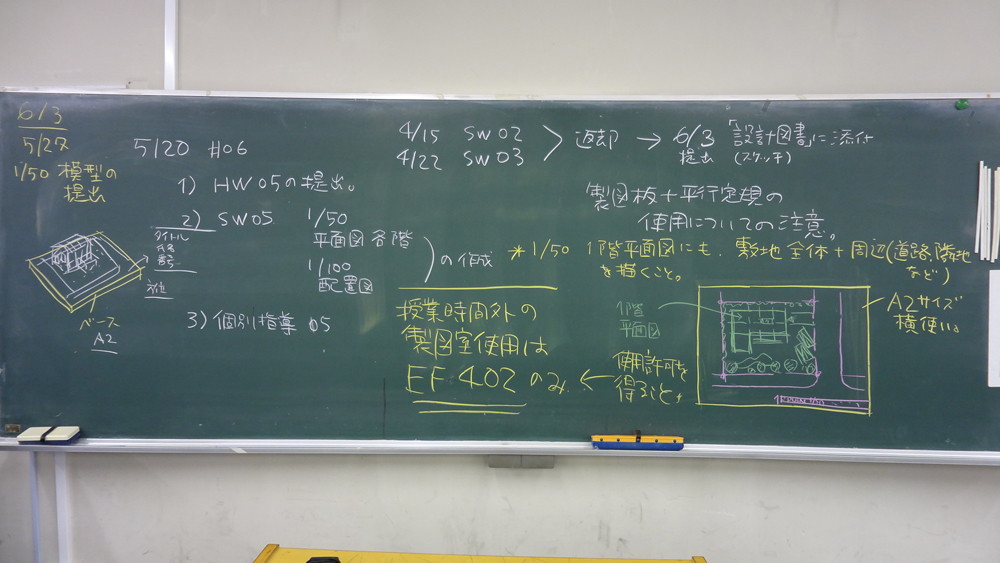 6/3
5/27
1/50 模型の
提出
タイトル
氏名
番号
方位
ベース
A2
5/20 #06
1) HW05の提出。
2) SW05 1/50
平面図 各階
1/100
配置図
の作成
3) 個別指導 05
4/15 SW02
4/22 SW03
返却 → 6/3 「設計図書」に添付
提出 (スケッチ)
製図板+平行定規の
使用についての注意。
* 1/50 1階平面図にも、敷地全体+周辺(道路,隣地
を描くこと。 など)
授業時間外の
製図室使用は
EF402のみ
← 使用許可を
得ること
1階
平面図
A2サイズ
横使い